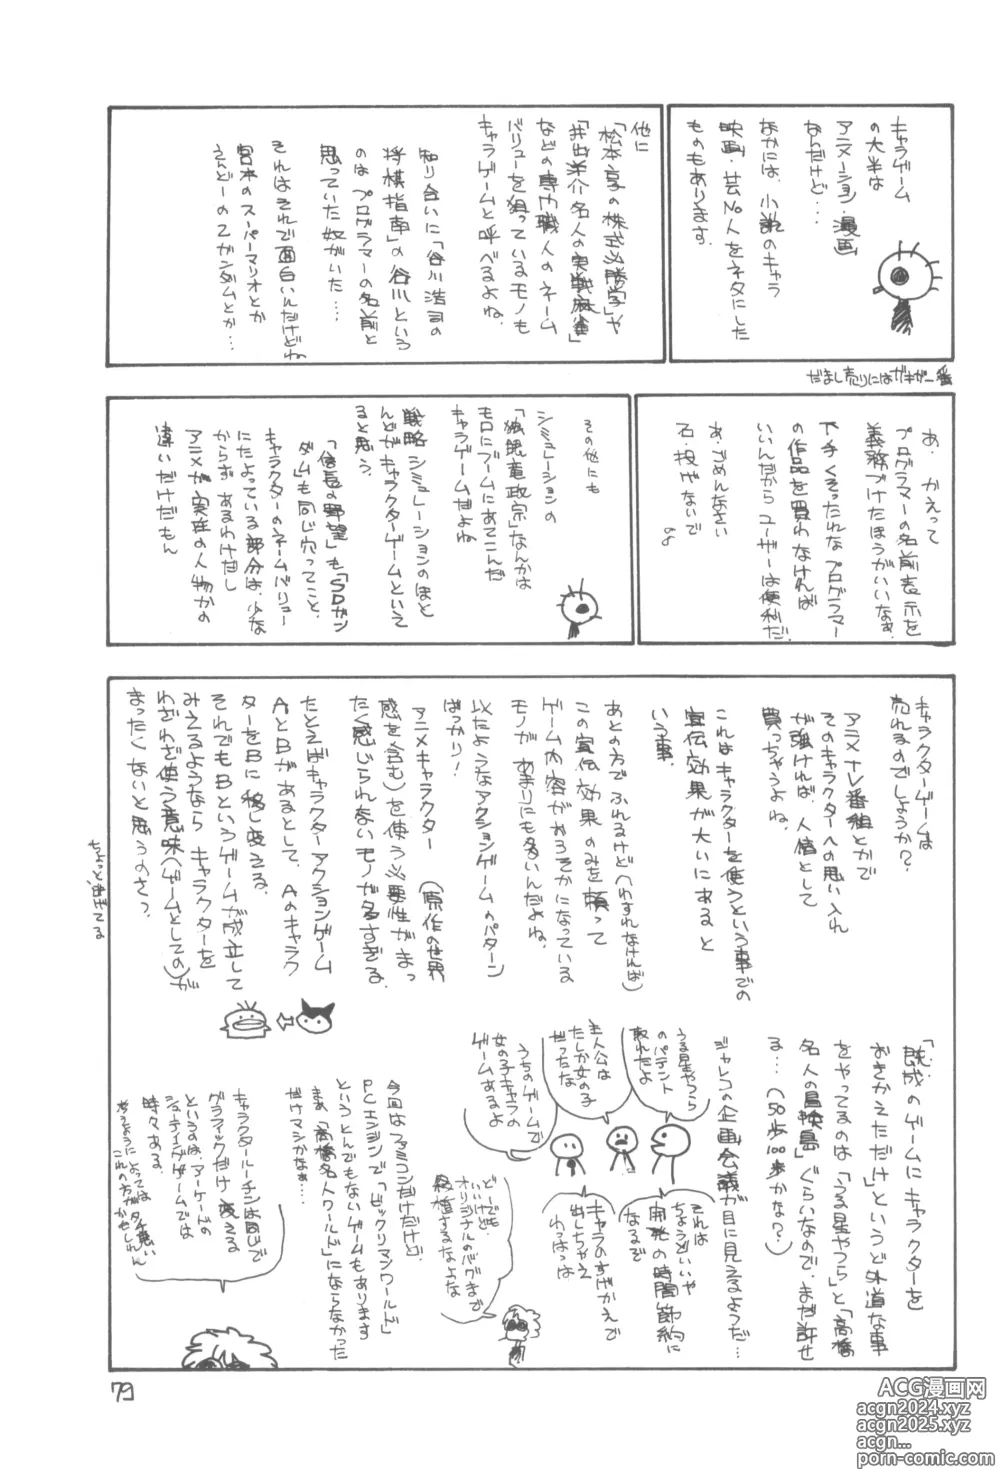 キャラゲーム
の大半は
アニメーション・漫画
なんだけど…
なかには、小説のキャラ
映画・芸No人をネタにした
ものもあります。
他に
「松本亨の株式必勝学」や
「井出洋介名人の実戦麻雀」
などの専門職人のネーム
バリューを狙っているモノも
キャラゲームと呼べるよね。
知り合いに「谷川浩司の
将棋指南」の谷川という
のはプログラマーの名前と
思っていた奴がいた…
それはそれで面白いんだけどね
宮本のスーパーマリオとか
えんどーのZガンダムとか…
だまし売りにはガキが一番
あ、かえって
プログラマーの名前表示を
義務づけたほうがいいなぁ
下手くそったれなプログラマー
の作品を買わなければ
いいんだからユーザーは便利だ。
あ、ごめんなさい
石、投げないで
その他にも
シミュレーションの
「独眼竜政宗」なんかは
モロにブームにあてこんだ
キャラゲームだよね
戦略シミュレーションのほと
んどがキャラクターゲームといって
ると思う。
「信長の野望」も「SDガン
ダム」も同じ穴ってこと、
キャラクターのネームバリュー
にたよっている部分は、少な
からず あるわけだし
アニメが実在の人物かの
違いだけだもん
キャラクターゲームは
売れるのでしょうか?
アニメナレ番組とかで
そのキャラクターへの思い入れ
が強ければ、人信として
買っちゃうよね。
これはキャラクターを使うという事での
宣伝効果が大いにあると
いう事、
あとの方でふれるけど(わすれなければ)
この宣伝効果のみを頼って
ゲーム内容がおろそかになっている
モノが あまりにも多いんだよね、
以たようなアクションゲームのパターン
ばっかり!
アニメキャラクター(原作の世界
感を含む)を使う必要性がまっ
たく感じられないモノが多すぎる
たとえばキャラクターアクションゲーム
AとBがあるとして、Aのキャラク
ターをBに移し変える。
それでもBというゲームが成立して
みえるようなら キャラクターを
わざわざ使う意味(ゲームとしての)が
まったくないと思うのさっ
ちょっと、逃げてる
「既成のゲームにキャラクターを
おきかえただけ」というど外道な事
をやってるのは「うる星やつら」と「高橋
名人の冒険島」ぐらいなので、まだ許せ
る…(50歩100歩かな?)
ジャレコの企画会議が目に見えるようだ…
うる星やつら
のパテント
取れたよ
主人公は
たしか女の子
だったな
うちのゲームで
女の子キャラの
ゲームあるよ
それは
ちょうどいいや
開発の時間節約に
なるぞ
キャラのすげかえで
出しちゃえ
わっはっは
どーでも
いいけど
オリジナルのバグまで
移植するなよな
今回はファミコンだけだけど
PCエンジンで「ビックリマンワールド」
というとんでもないゲームもあります
まぁ「高橋名人ワールド」にならなかった
だけマシかなぁ…
キャラクタールーチンは同じで
グラフィックだけ変える
というのは、アーケードの
シューティングゲームでは
時々ある。
考えようによっては
これの方がタチ悪い
かもしれん
79
ACG漫画网
acgn2024.xyz
acgn2025.xyz
acgn...
porn-comic.com